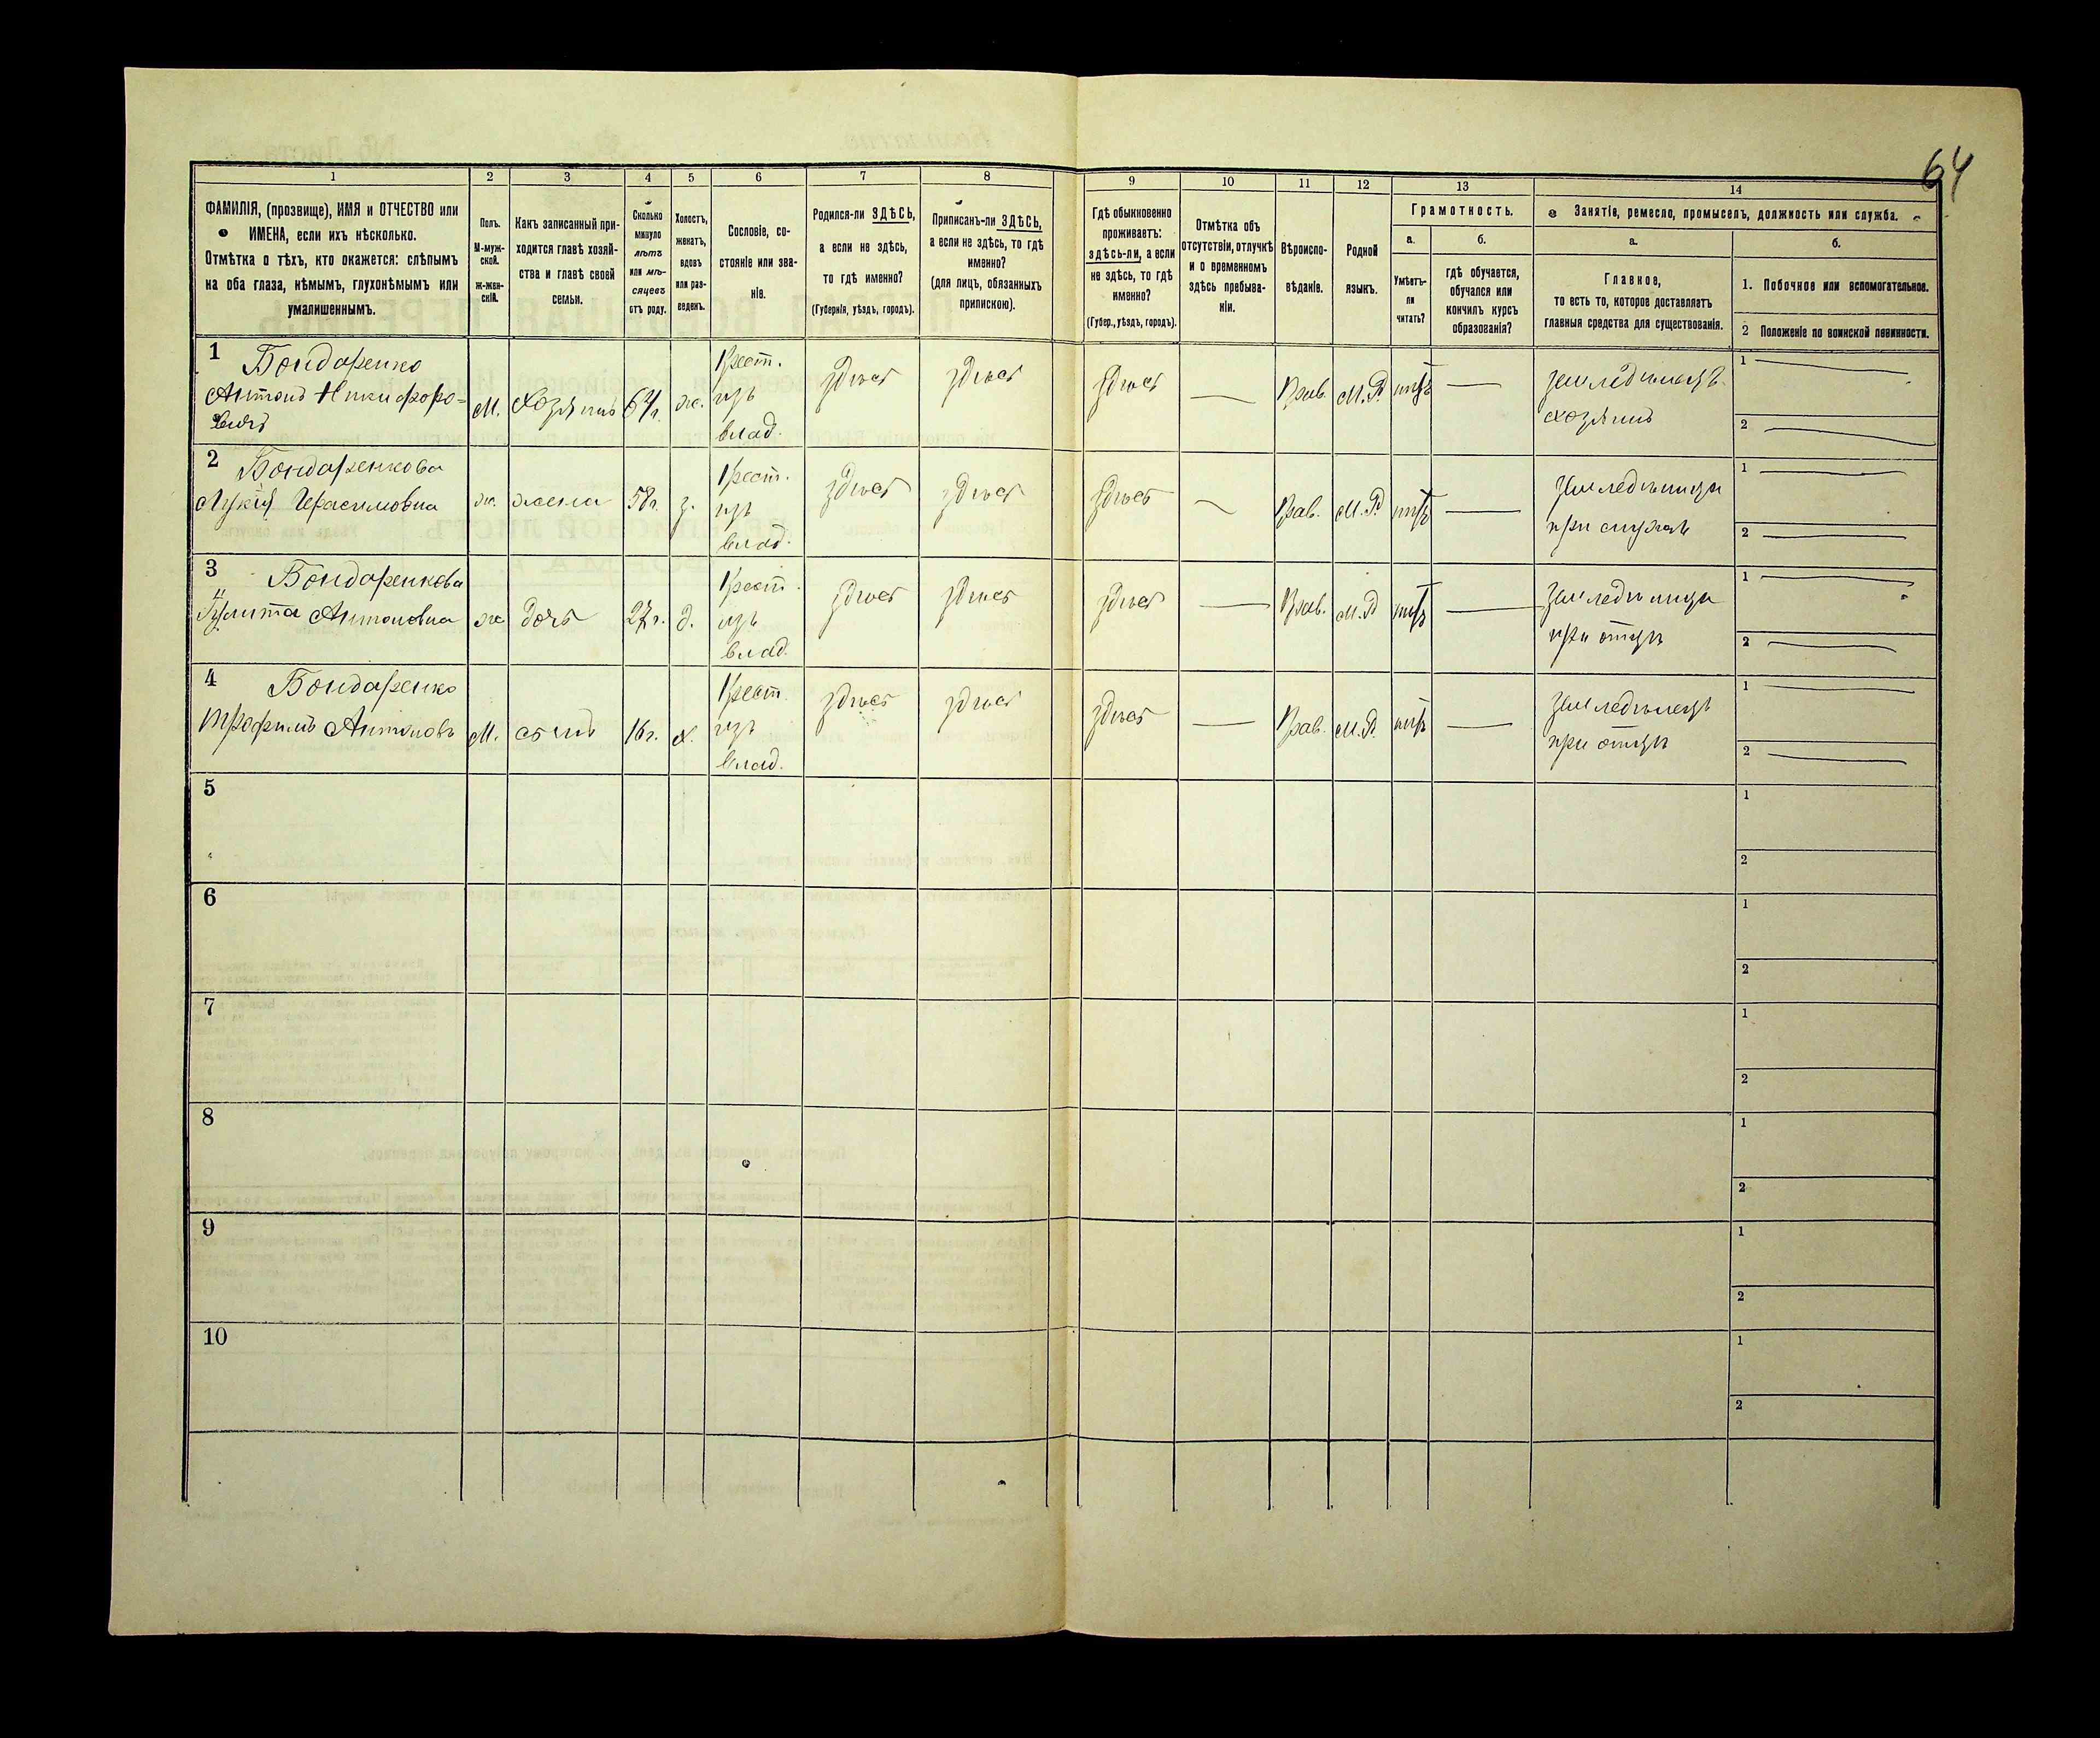 64
1 2 3 4 5 6 7 8 9 10 11 12 13 14
ФАМИЛІЯ, (прозвище), ИМЯ и ОТЧЕСТВО или
ИМЕНА, если ихъ нѣсколько.
Отмѣтка о тѣхъ, кто окажется: слѣпымъ
на оба глаза, нѣмымъ, глухонѣмымъ или
умалишеннымъ.
Полъ.
М-муж-
ской.
ж-жен-
скій.
Какъ записанный при-
ходится главѣ хозяй-
ства и главѣ своей
семьи.
Сколько
минуло
лѣтъ
или мѣ-
сяцевъ
отъ роду.
Холостъ,
женатъ,
вдовъ
или раз-
веденъ.
Сословіе, со-
стояніе или зва-
ніе.
Родился-ли ЗДѢСЬ,
а если не здѣсь,
то гдѣ именно?
(Губернія, уѣздъ, городъ).
Приписанъ-ли ЗДѢСЬ,
а если не здѣсь, то гдѣ
именно?
(для лицъ, обязанныхъ
припискою).
Гдѣ обыкновенно
проживаетъ:
здѣсь-ли, а если
не здѣсь, то гдѣ
именно?
(Губер., уѣздъ, городъ).
Отмѣтка объ
отсутствіи, отлучкѣ
и о временномъ
здѣсь пребыва-
ніи.
Вѣроиспо-
вѣданіе.
Родной
языкъ.
Грамотность.
а.
Умѣетъ-
ли
читать?
б.
гдѣ обучается,
обучался или
кончилъ курсъ
образованія?
Занятіе, ремесло, промыселъ, должность или служба.
а.
Главное,
то есть то, которое доставляетъ
главныя средства для существованія.
б.
1. Побочное или вспомогательное.
2 Положеніе по воинской повинности.
1 Бондаренко
Антонъ Никифоро-
вичъ
М. хозяинъ 64г. ж.
Крест.
изъ
влад.
здѣсь здѣсь здѣсь — Прав. М.Р. нѣтъ —
земледѣлецъ
хозяинъ
1 —
2 —
2 Бондаренкова
Герасимовна
ж. жена 58г. з.
Крест.
изъ
влад.
здѣсь здѣсь здѣсь — Прав. М.Р нѣтъ —
земледѣлица
при мужѣ
1 —
2 —
3 Бондаренкова
Антоновна
ж дочь 27г. д.
Крест.
изъ
влад.
здѣсь здѣсь здѣсь — Прав. М.Р нѣтъ —
земледѣлица
при отцѣ
1 —
2 —
4 Бондаренко
Трофимъ Антоновъ
М. сынъ 16г. х.
Крест.
изъ
влад.
здѣсь здѣсь здѣсь — Прав. М.Р. нѣтъ —
земледѣлецъ
при отцѣ
1 —
2 —
5
1
2
6
1
2
7
1
2
8
1
2
9
1
2
10
1
2